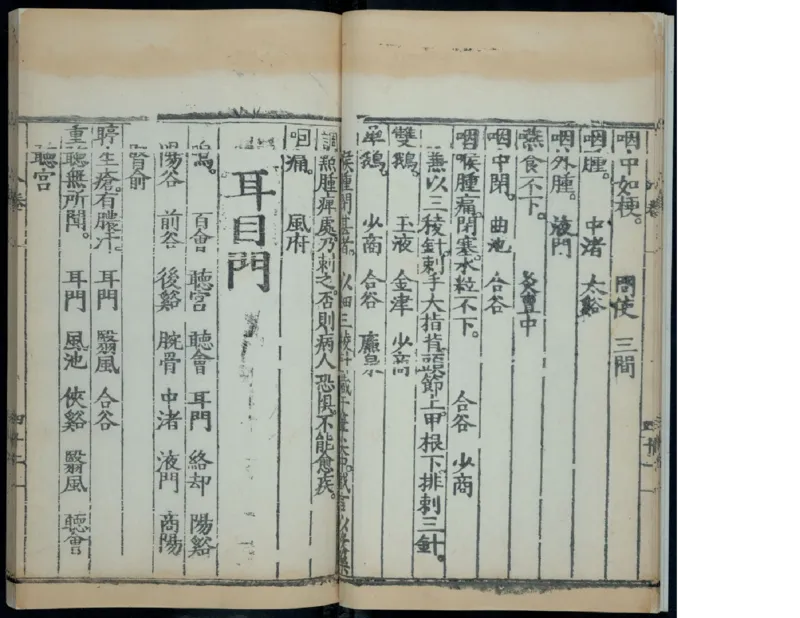 咽中如梗。 間使 三間
咽腫。 中渚 太谿
咽外腫。 液門
嚥食不下。 灸亶中
咽中閉。 曲池 合谷
咽喉腫痛閉塞。水粒不下。 合谷 少商
兼以三稜針刺手大指背頭節上甲根下。排刺三針。
雙鵝。 玉液 金津 少商
單鵝。 少商 合谷 廉泉
喉腫閉甚者。以細三稜針
言 腫痹處乃刺之。否則病人恐惧。不能愈疾。
咽痛。 風府
耳目門
鳴。 百會 聽宮 聽會 耳門 絡却 陽谿
陽谷 前谷 後谿 腕骨 中渚 液門 商陽
腎俞
聤生瘡。有膿汁。 耳門 翳風 合谷
重聽無所聞。 耳門 風池 俠谿 翳風 聽會
聽宮